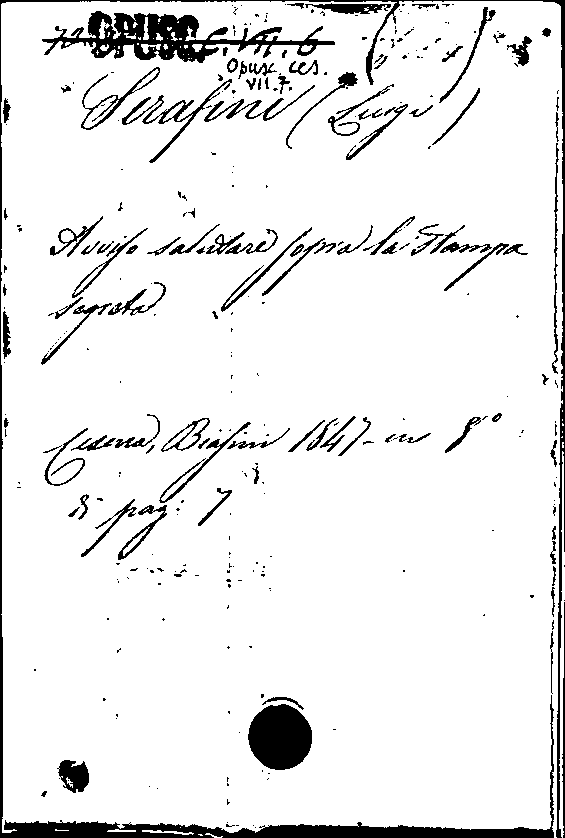 OPUSC. C. VII. 6
Opusc. ces.
VII. 7.
Serafini (Luigi)
Avviso salutare sopra la Stampa
segreta
Cesena, Biasini 1847 - in 8º
di pag: 7